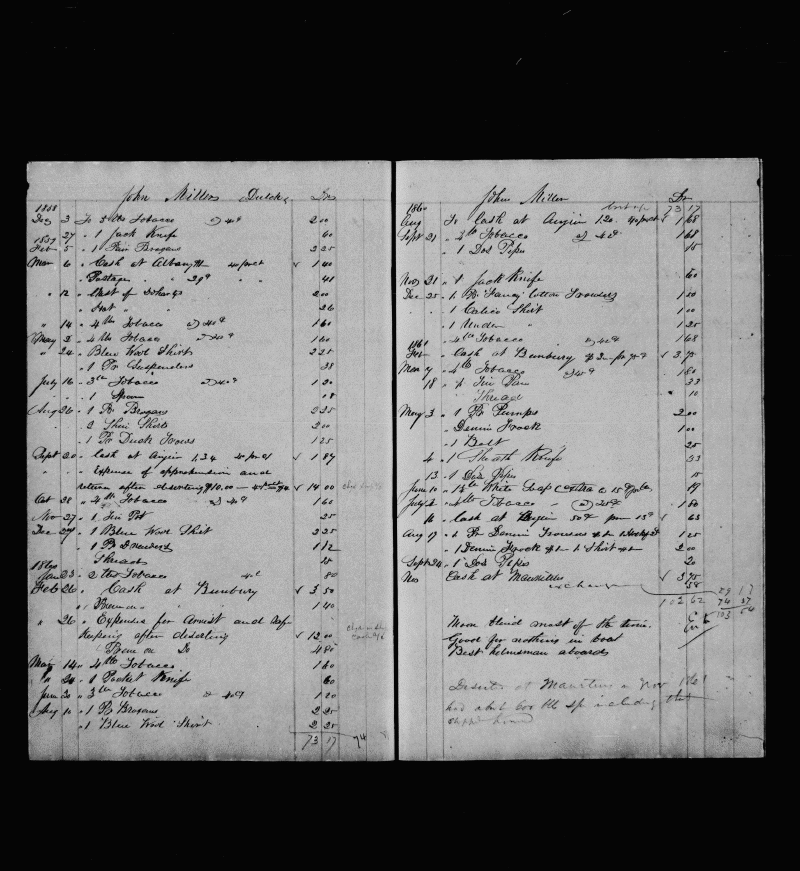 John Miller Dutch Dr
1858
Dec 3 To 5 lbs Tobacco @ 40¢ 2 00
" 27 " 1 Jack Knife 60
1859
Feb 5 " 1 Pair Brogans 2 25
Mar 6 " Cash at Albany 40 prct 1 40
Postage " 29¢ " " 41
" 12 " 2 00
" Hat " 26
" 14 " 4 lbs Tobacco @ 40¢ 1 60
May 2 " 4 lbs Tobacco @ 40¢ 1 60
" 24 " Blue Wool Shirt 2 25
" 1 Pr Suspenders 38
July 16 " 3 lbs Tobacco @ 40¢ 1 20
" 1 Spoon 18
Aug 26 " 1 Pr Brogans 2 25
" 2 Thin Shirts 2 00
" 1 Pr Duck Trows 1 25
Sept 20 " Cash at Angier 1,34 40 prct 1 87
" " Expense of apprehension and
return after deserting $10.00 14 00
Oct 28 " 4 lbs Tobacco @ 40¢ 1 60
Nov 27 " 1 Tin Pot 25
Dec 27 " 1 Blue Wool Shirt 2 25
" 1 Pr Drawers 1 12
Thread
1860
Jan 23 " 2 lbs Tobacco 40¢ 80
Feb 26 " Cash at Bunbury 3 50
" Prem on " 1 40
" 26 " Expenses for Arrest and safe
keeping after deserting 12 00
Prem on Do 4 80
May 14 " 4 lbs Tobacco 1 60
" 24 " 1 Pocket Knife 60
June 20 " 3 lbs Tobacco @ 40¢ 1 20
Aug 10 " 1 Pr Brogans 2 25
" 1 Blue Wool Shirt 2 25
73 17 74
John Miller Dr
1860 73 17
Aug To Cash at Angier 1.20 40 prct 1 68
Sept 21 " 4 lbs Tobacco @ 42 1 68
" 1 Doz Pipes 15
Nov 21 " 1 Jack Knife 60
Dec 25 " 1 Pr Fancy Cotton Trowsers 1 50
" 1 Calico Shirt 1 00
" 1 Under " 1 25
" 4 lbs Tobacco @ 42 1 68
1861
Feb " Cash at Bunbury 3 75
Mar 4 " 4 lbs Tobacco 1 80
18 " 1 Tin Pan 33
Thread 10
May 3 " 1 Pr Pumps 2 00
" Denim Frock 1 00
" 1 Belt 25
4 " 1 Sheath Knife 33
13 " 1 Doz Pipes 15
June 10 " White 19
July 2 " 4 lbs Tobacco @ 40¢ 1 60
16 " Cash at Angier 50¢ 63
Aug 17 " 1 Pr Denim Trowsers 1 25
" 1 Denim Frock $1 - 1 Shirt $1 2 00
Sept 20 " 1 Doz Pipes 20
Nov Cash at Mauritius 3 75
exchange 58
102 62
Moon blind most of the time.
Good for nothing in boat
Best helmsman aboard
Deserted at Mauritius in Nov 1861
had about 600 lbs sp including that